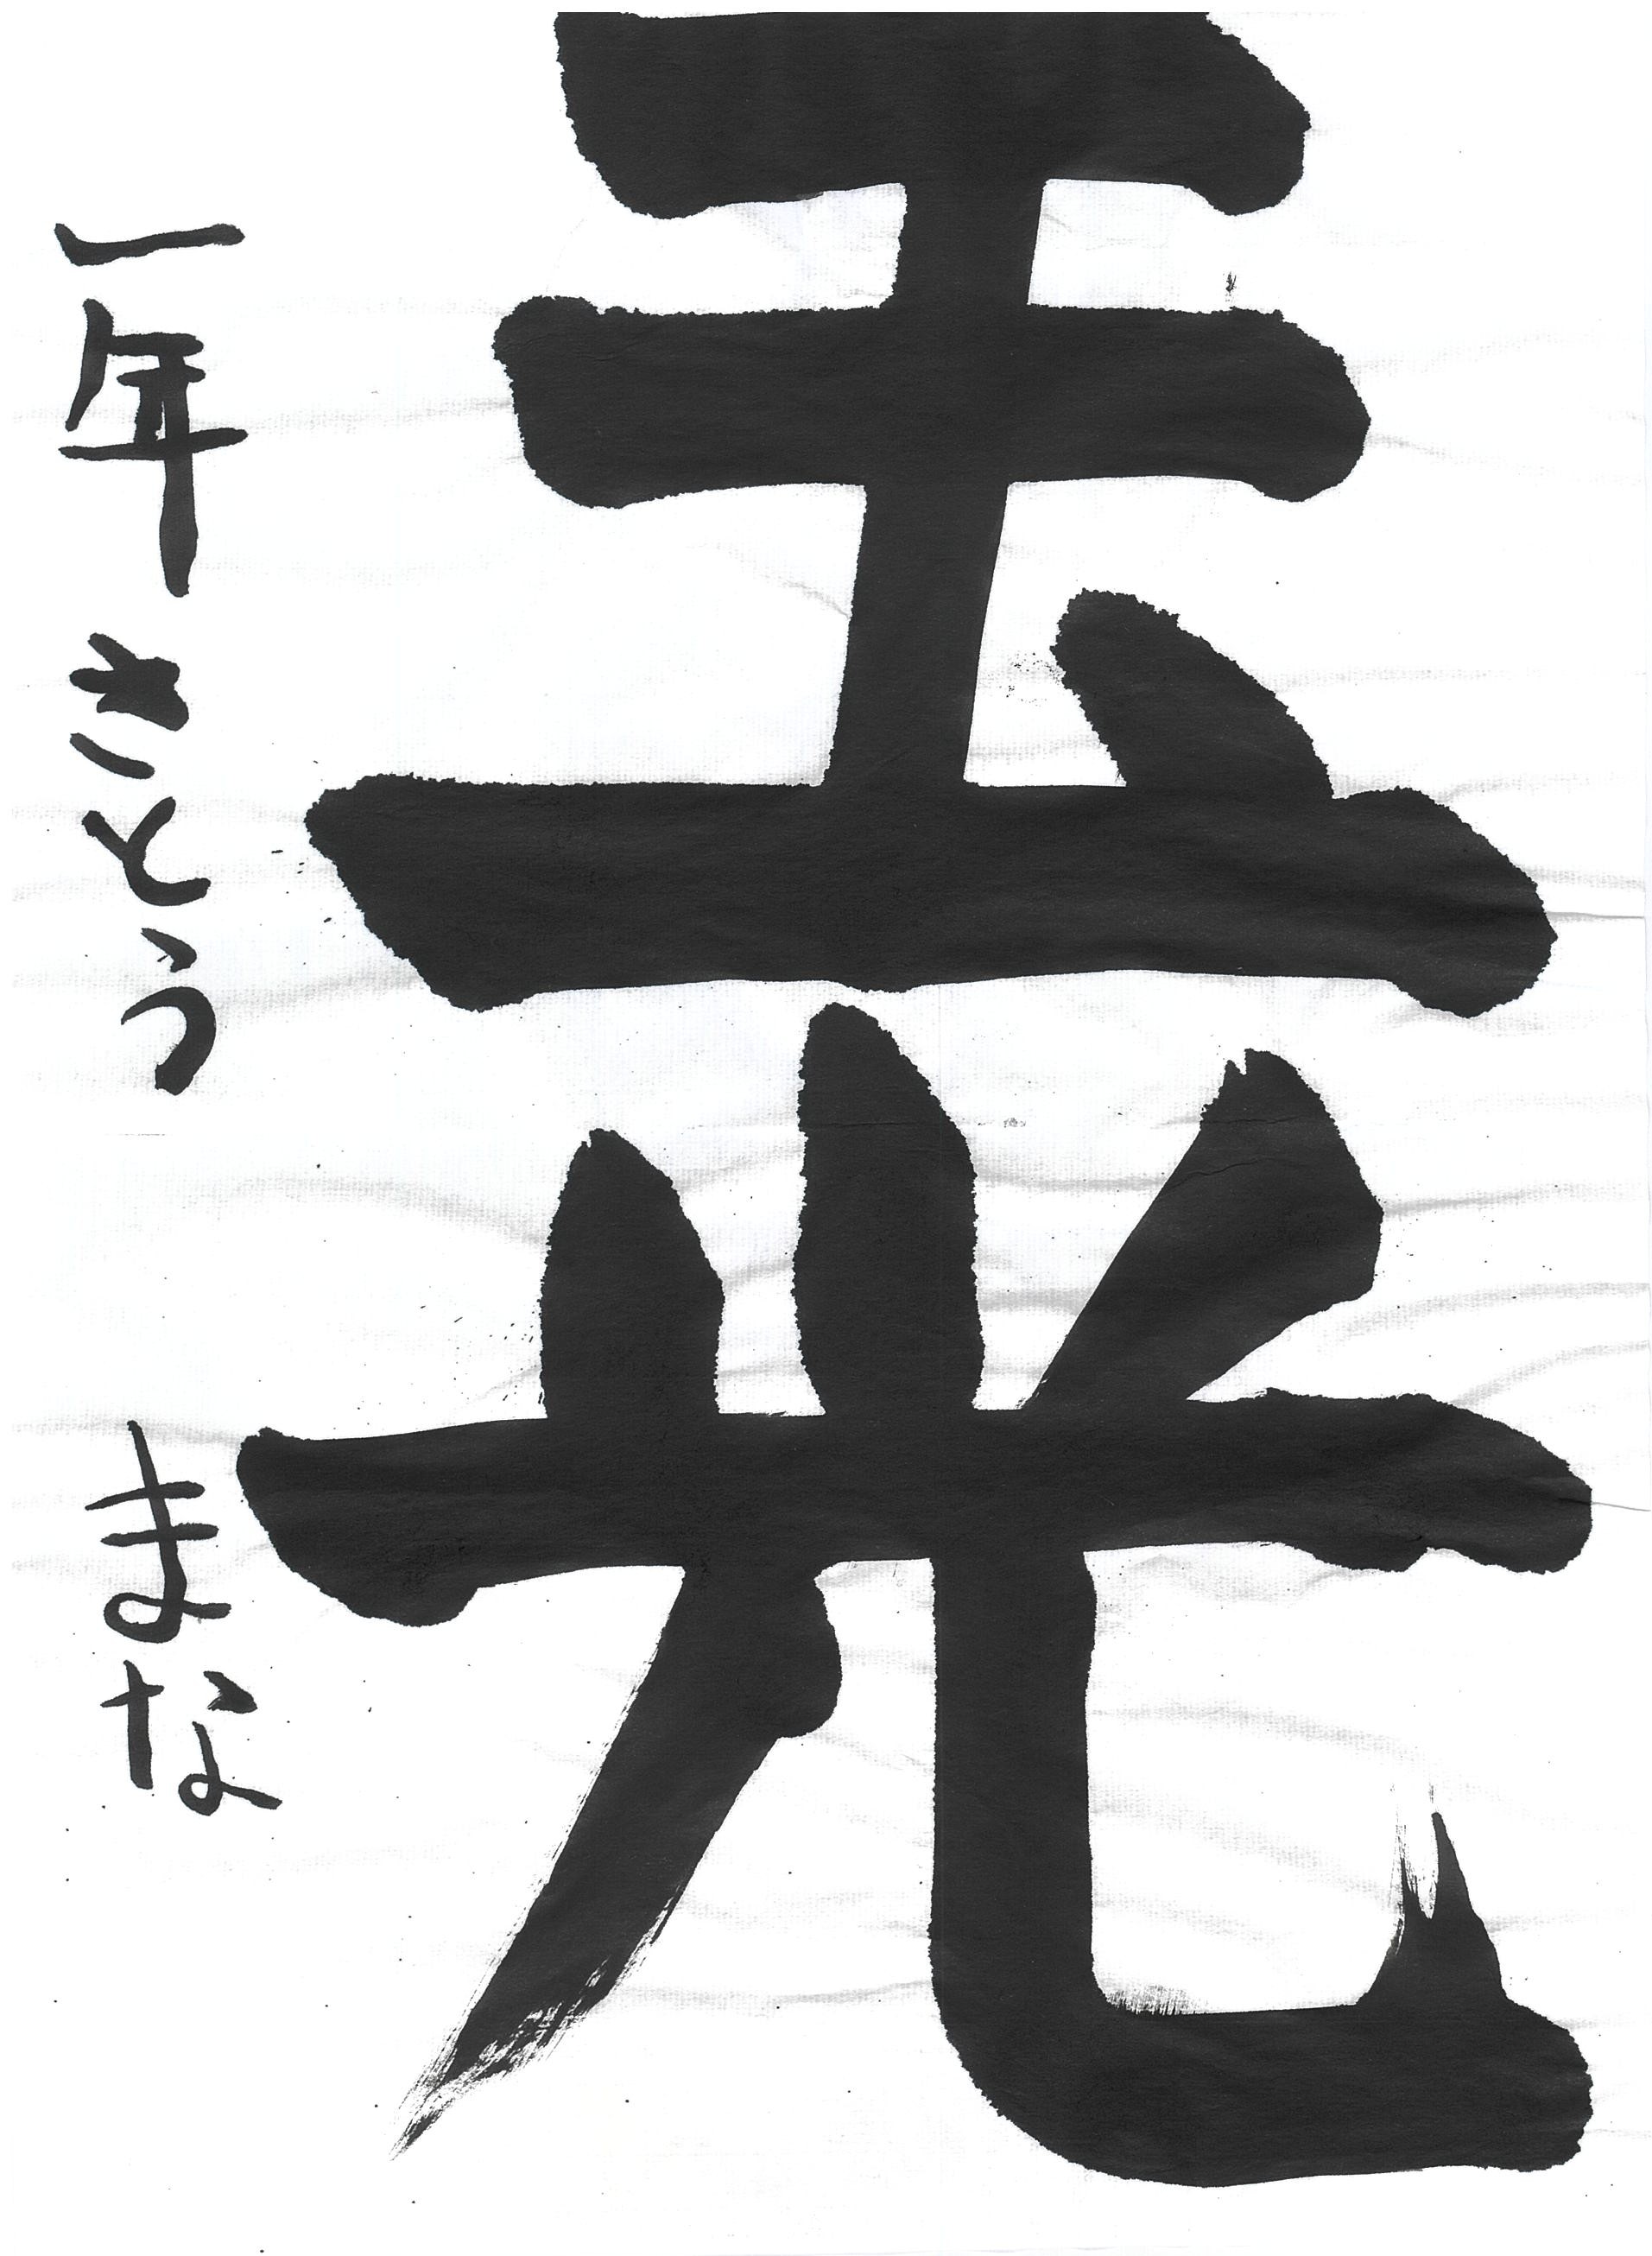 玉光
一年 さとう まな